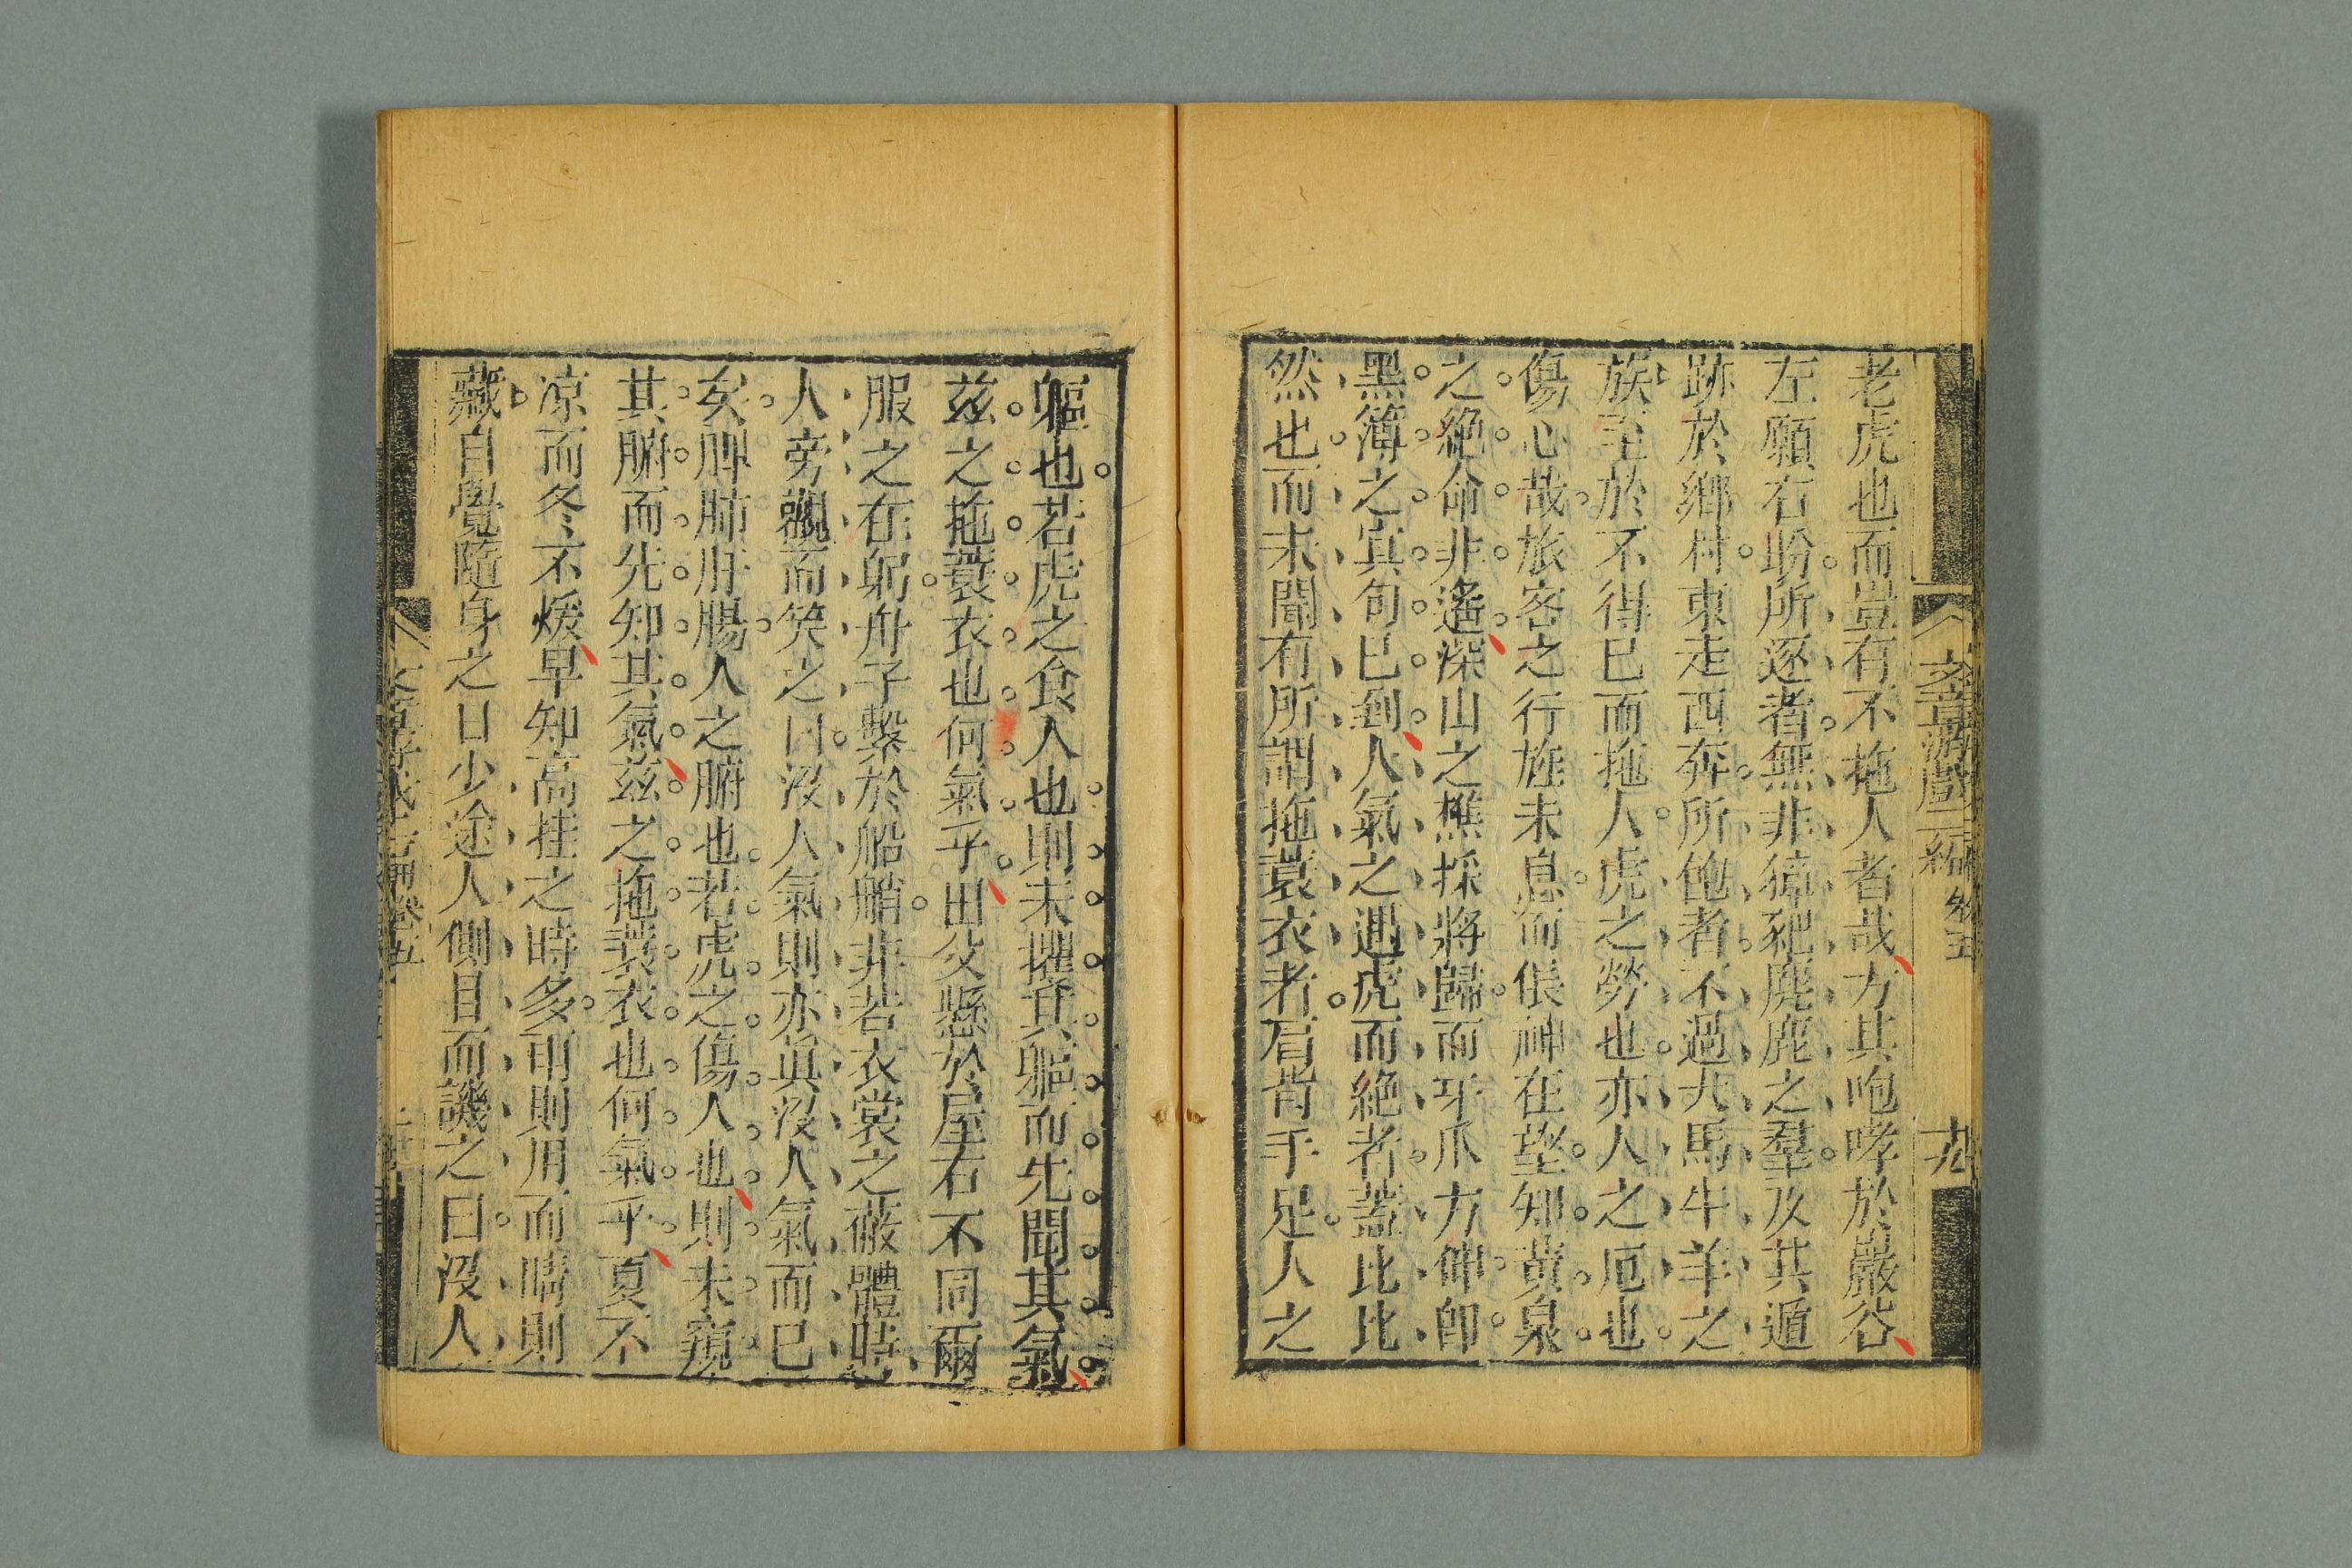 文章游戲二編 卷五 十九
老虎也而豈有不拖人者哉方其咆哮於巖谷
左顧右盼所逐者無非獐豝麂鹿之羣及其遁
跡於鄉村東走西奔所飽者不過犬馬牛羊之
族至於不得已而拖人虎之勞也亦人之厄也
傷心哉旅客之行旌未息而倀神在望知黃泉
之絕命非遙深山之樵採將歸而牙爪方伸卽
黑簿之寘句已到人氣之遇虎而絕者蓋比比
然也而未聞有所謂拖蓑衣者肩背手足人之
軀也若虎之食人也則未攫其軀而先聞其氣
茲之拖蓑衣也何氣乎田父懸於屋右不同爾
服之在躬舟子繫於船艄非若衣裳之蔽體時
人旁觀而笑之曰沒人氣則亦眞沒人氣而已
矣脾肺肝腸人之腑也若虎之傷人也則未窺
其腑而先知其氣茲之拖蓑衣也何氣乎夏不
凉而冬不煖早知高挂之時多雨則用而晴則
藏自覺隨身之日少途人側目而譏之曰沒人
卷五